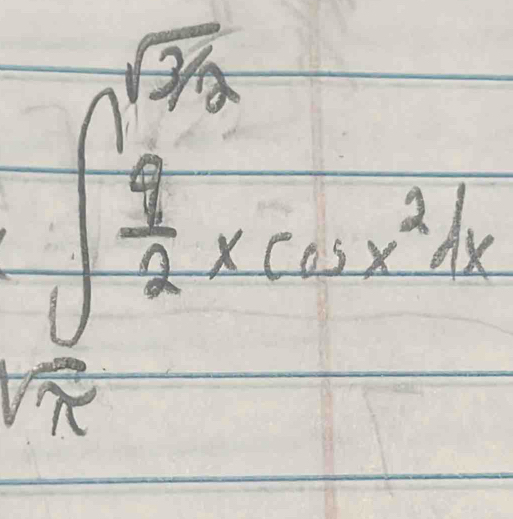 √3/2
∫ 9/2 x cos x² dx
√π